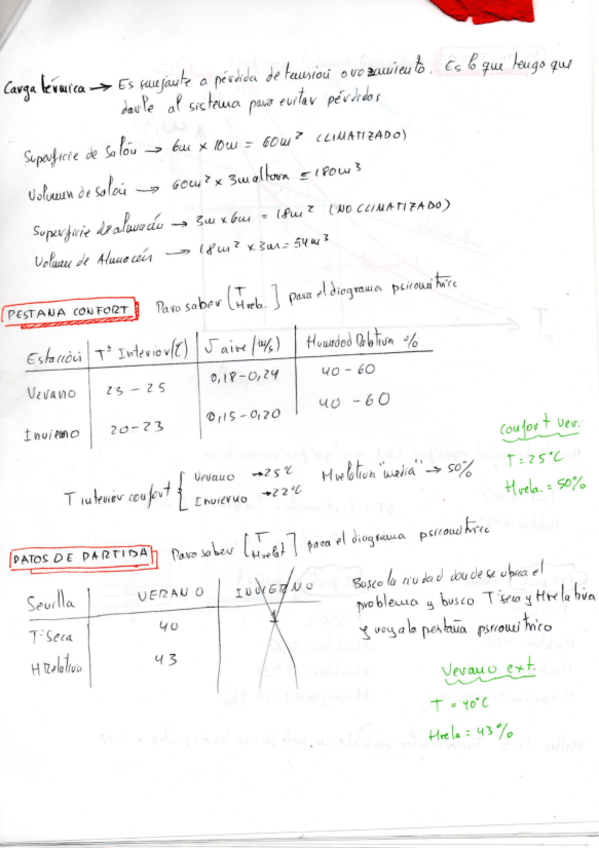 Carga térmica → Es semejante a pérdida de tension o rozamiento. Es lo que tengo que
darle al sistema para evitar pérdidas
Superficie de Salón → 6m x 10m = 60m² (CLIMATIZADO)
Volumen de salón → 60m² x 3m altura = 180m³
Superficie de almacén → 3m x 6m = 18m² (NO CLIMATIZADO)
Volumen de Almacén → 18m² x 3m = 54m³
PESTAÑA CONFORT Para saber [T Hrela.] para el diagrama psicrométrico
Estación T° Interior (°C) V aire (m/s) Humedad Relativa %
Verano 23 - 25 0,18-0,24 40 - 60
Invierno 20-23 0,15-0,20 40 - 60
confort ver.
T = 25°C
Hrela. = 50%
T interior confort { Verano → 25°C
Invierno → 22°C
Hrelativa "media" → 50%
DATOS DE PARTIDA Para saber [T Hrelat] para el diagrama psicrométrico
Sevilla VERANO INVIERNO
T°Seca 40
HRelativa 43
Busco la ciudad donde se ubica el
problema y busco T seca y Hrelativa
y voy a la pestaña psicrométrico
Verano ext.
T = 40°C
Hrela = 43%